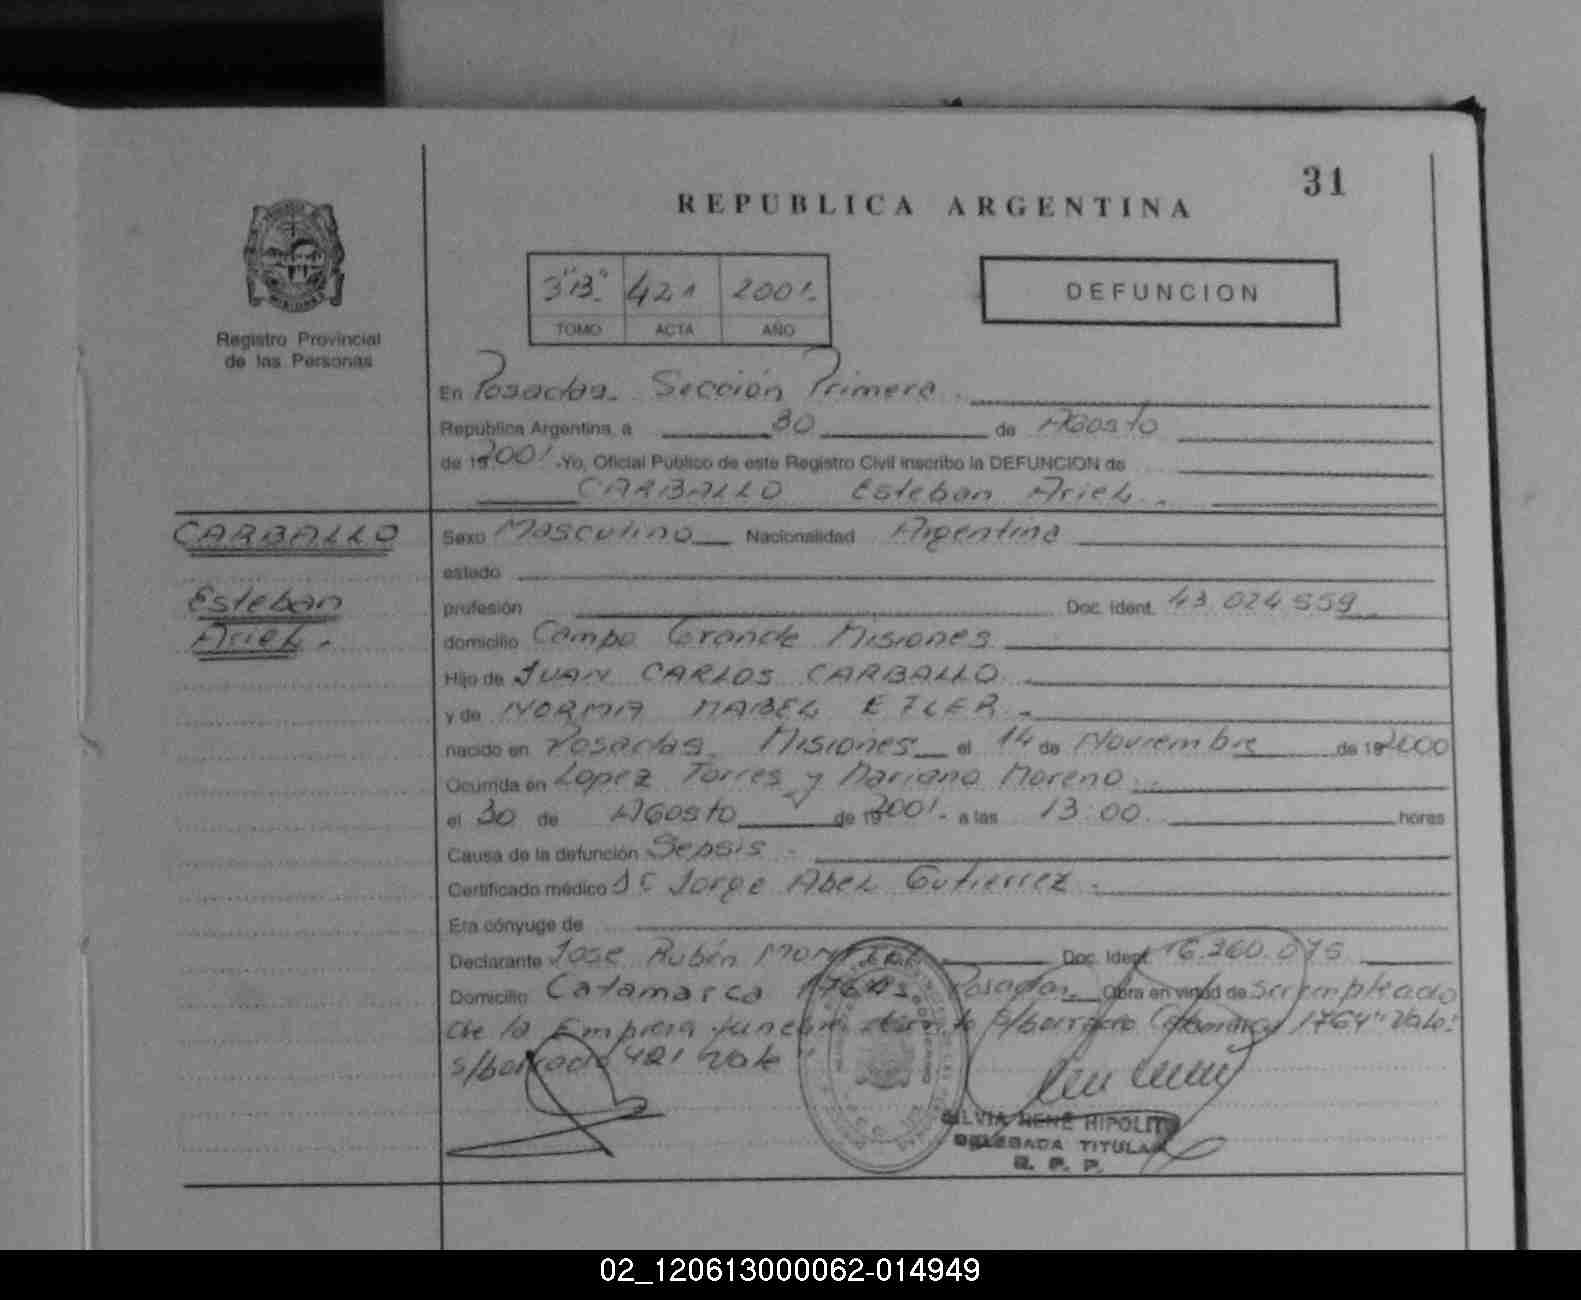 31
REPUBLICA ARGENTINA
MISIONES
Registro Provincial
de las Personas
3"B" 421 2001.
TOMO ACTA AÑO
DEFUNCION
En Posadas. Sección Primera.
Republica Argentina, a 30 de Agosto
de 19 2001. Yo, Oficial Público de este Registro Civil inscribo la DEFUNCION de
CARBALLO Esteban Ariel.
CARBALLO
Esteban
Ariel.
Sexo Masculino Nacionalidad Argentina
estado
profesión Doc. Ident. 43.024.559
domicilio Campo Grande Misiones
Hijo de JUAN CARLOS CARBALLO
y de NORMA MABEL
nacido en Posadas. Misiones el 14 de Noviembre de 19 2000
Ocurrida en Lopez Torres y Mariano Moreno
el 30 de Agosto de 19 2001. a las 13:00 horas
Causa de la defunción Sepsis.
Certificado médico Jorge Abel Gutierrez.
Era cónyuge de
Declarante Jose Rubén Doc. Ident. 16.360.075
Domicilio Catamarca Posadas. Obra en virtud de ser empleado
de la Empresa 1764 "Vale"
s/borrado 421 Vale"
SILVIA RENÉ HIPOLITO
DELEGADA TITULAR
R. P. P.
02_120613000062-014949